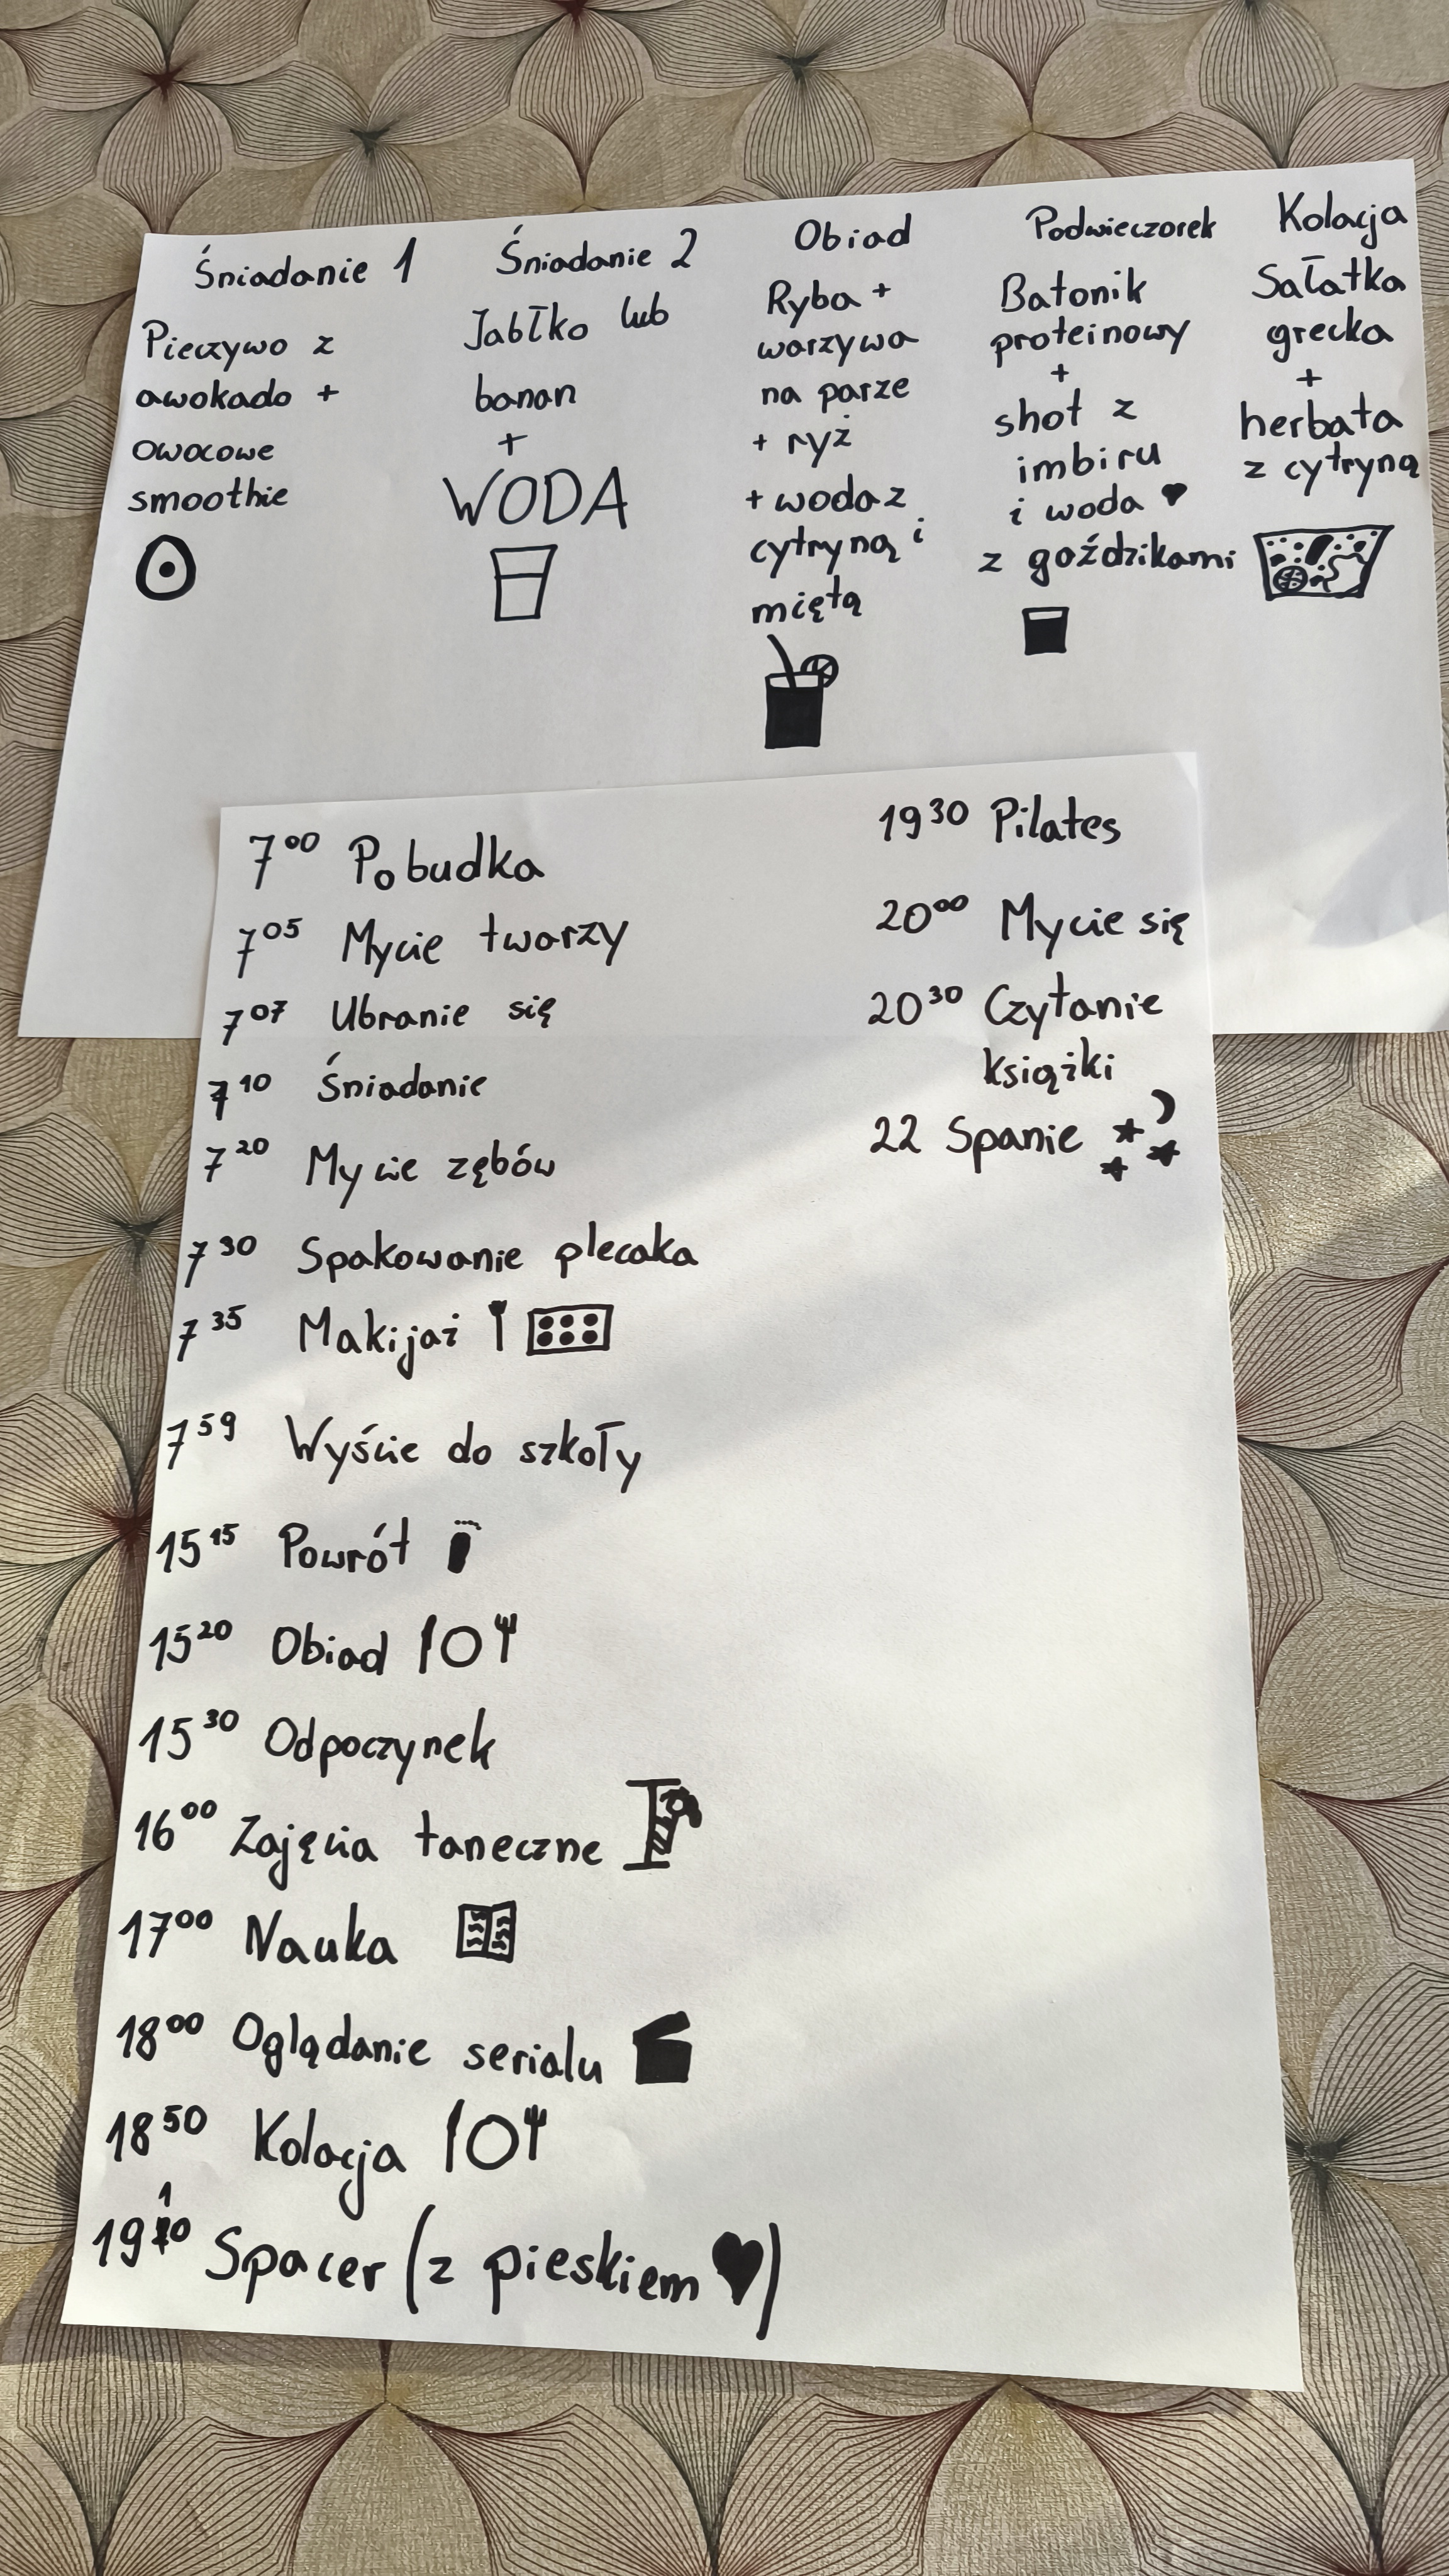 Śniadanie 1
Pieczywo z
awokado +
owocowe
smoothie
Śniadanie 2
Jabłko lub
banan
+
WODA
Obiad
Ryba +
warzywa
na parze
+ ryż
+ woda z
cytryną i
miętą
Podwieczorek
Batonik
proteinowy
+
shot z
imbiru
i woda ♥
z goździkami
Kolacja
Sałatka
grecka
+
herbata
z cytryną
7⁰⁰ Pobudka
7⁰⁵ Mycie twarzy
7⁰⁷ Ubranie się
7¹⁰ Śniadanie
7²⁰ Mycie zębów
7³⁰ Spakowanie plecaka
7³⁵ Makijaż
7⁵⁹ Wyście do szkoły
15¹⁵ Powrót
15²⁰ Obiad
15³⁰ Odpoczynek
16⁰⁰ Zajęcia taneczne
17⁰⁰ Nauka
18⁰⁰ Oglądanie serialu
18⁵⁰ Kolacja
19¹⁰ Spacer (z pieskiem ♥)
19³⁰ Pilates
20⁰⁰ Mycie się
20³⁰ Czytanie
książki
22 Spanie